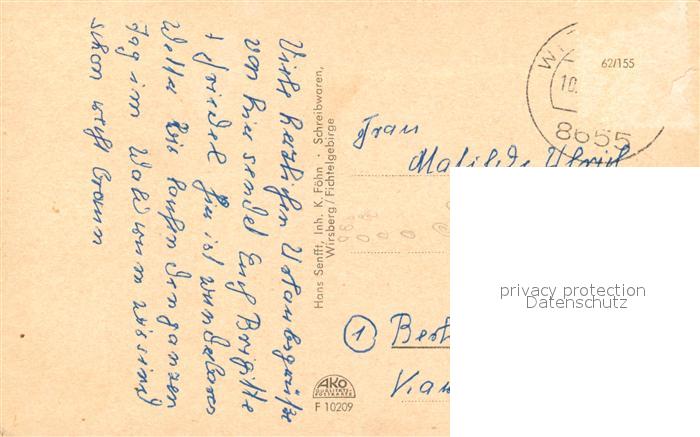 Viele herzlichen Urlaubsgrüße
von hier sendet Euch Brigitte
+ Friedel hier ist wunderbares
Wetter Wir laufen den ganzen
Tag im Wald rum wir sind
schon recht braun
Hans Senfft, Inh. K. Föhn · Schreibwaren,
Wirsberg/Fichtelgebirge
AKO
QUALITÄTS
POSTKARTE
F 10209
62/155
10.
8655
Frau
Matilde Ulrich
1 Berl
privacy protection
Datenschutz